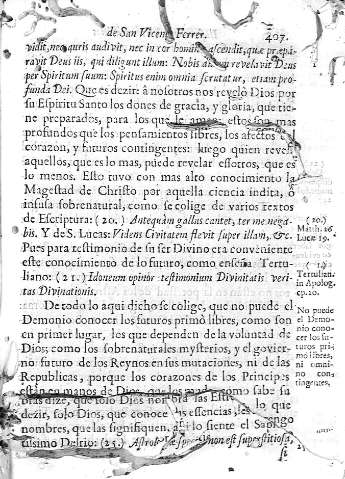 de San Vicente Ferrer. 407.
vidit, nec auris audivit, nec in cor hominis ascendit, quæ præpa-
ravit Deus iis, qui diligunt illum: Nobis autem revelavit Deus
per Spiritum suum: Spiritus enim omnia scrutatur, etiam pro-
funda Dei. Que es dezir: à nosotros nos revelò Dios por
su Espiritu Santo los dones de gracia, y gloria, que tie-
ne preparados, para los que le aman: estos son mas
profundos que los pensamientos libres, los afectos
corazon, y futuros contingentes: luego quien revela
aquellos, que es lo mas, puede revelar essotros, que es
lo menos. Esto tuvo con mas alto conocimiento la
Magestad de Christo por aquella ciencia indita, ò
infusa sobrenatural, como se colige de varios textos
de Escriptura: (20.) Antequàm gallus cantet, ter me nega-
bis. Y de S. Lucas: Videns Civitatem flevit super illam, &c.
Pues para testimonio de su ser Divino era conveniente
este conocimiento de lo futuro, como enseña Tertu-
liano: (21.) Idoneum opinor testimonium Divinitatis veri-
tas Divinationis.
De todo lo aqui dicho se colige, que no puede el
Demonio conocer los futuros primò libres, como son
en primer lugar, los que dependen de la voluntad de
Dios; como los sobrenaturales mysterios, y el govier-
no futuro de los Reynos en sus mutaciones, ni de las
Republicas, porque los corazones de los Principes
estàn en manos de Dios, que los como sabe su
dezir, solo Dios, que conoce essencias, les
nombres, que las signifiquen, assi lo siente el Sapie
tissimo Delrio: (25.) non est superstitiosa,
(20.)
Matth. 26
Lucæ 19.
Tertulian.
in Apolog.
cp. 20.
No puede
el Demo-
nio cono-
cer los fu-
turos pri-
mò libres,
ni omni-
no con-
tingentes,